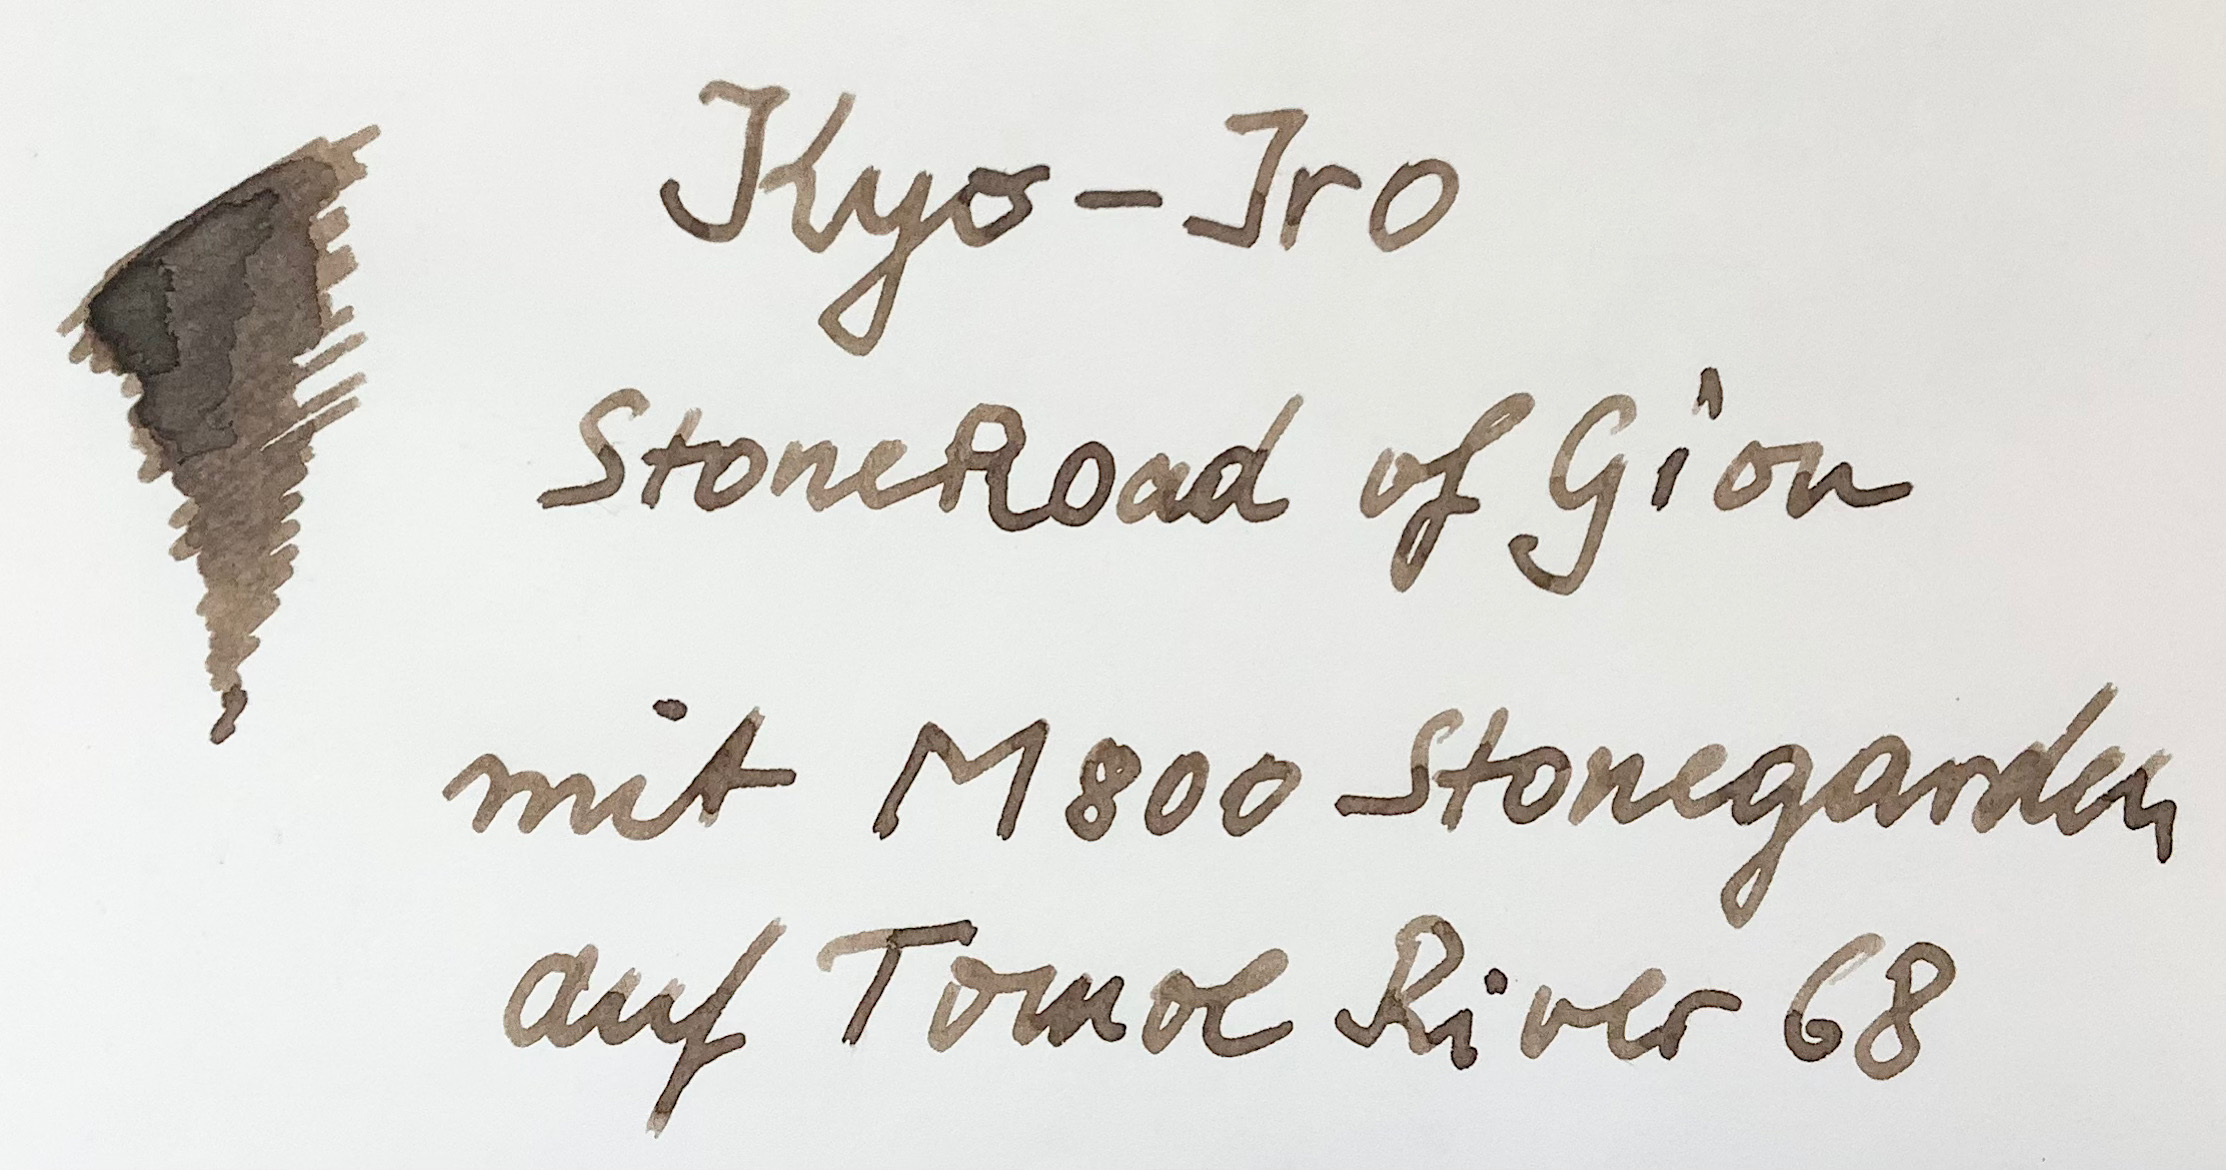 Kyo-Iro
StoneRoad of Gion
mit M800 Stonegarden
auf Tomoe River 68